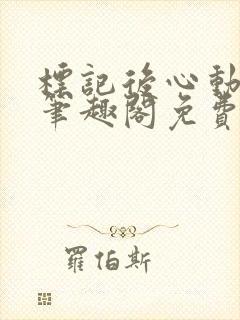 標記後心動
筆趣閣免費
羅伯斯